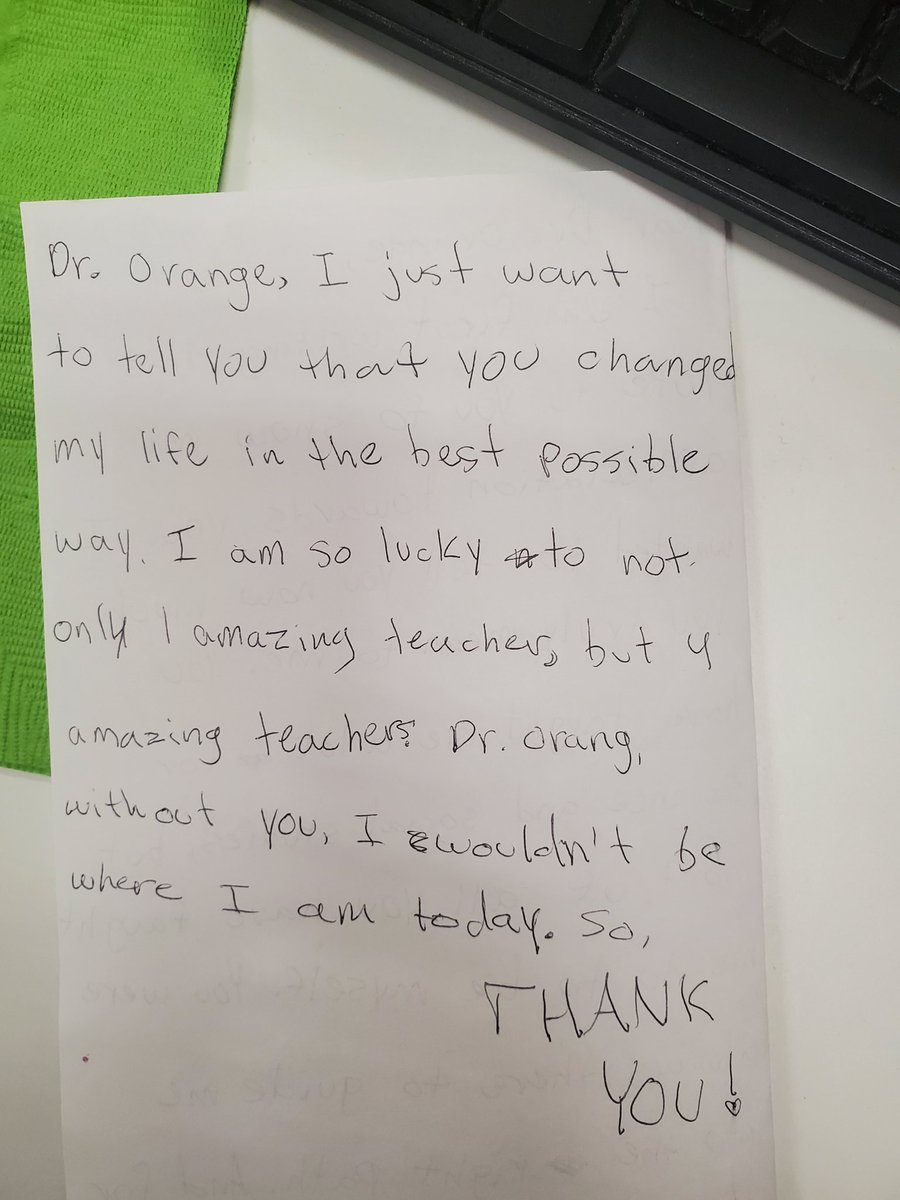 Dr. Orange, I just want
to tell you that you changed
my life in the best possible
way. I am so lucky to not
only 1 amazing teacher, but 4
amazing teachers. Dr. Orang,
without you, I wouldn't be
where I am today. So,
THANK
YOU!